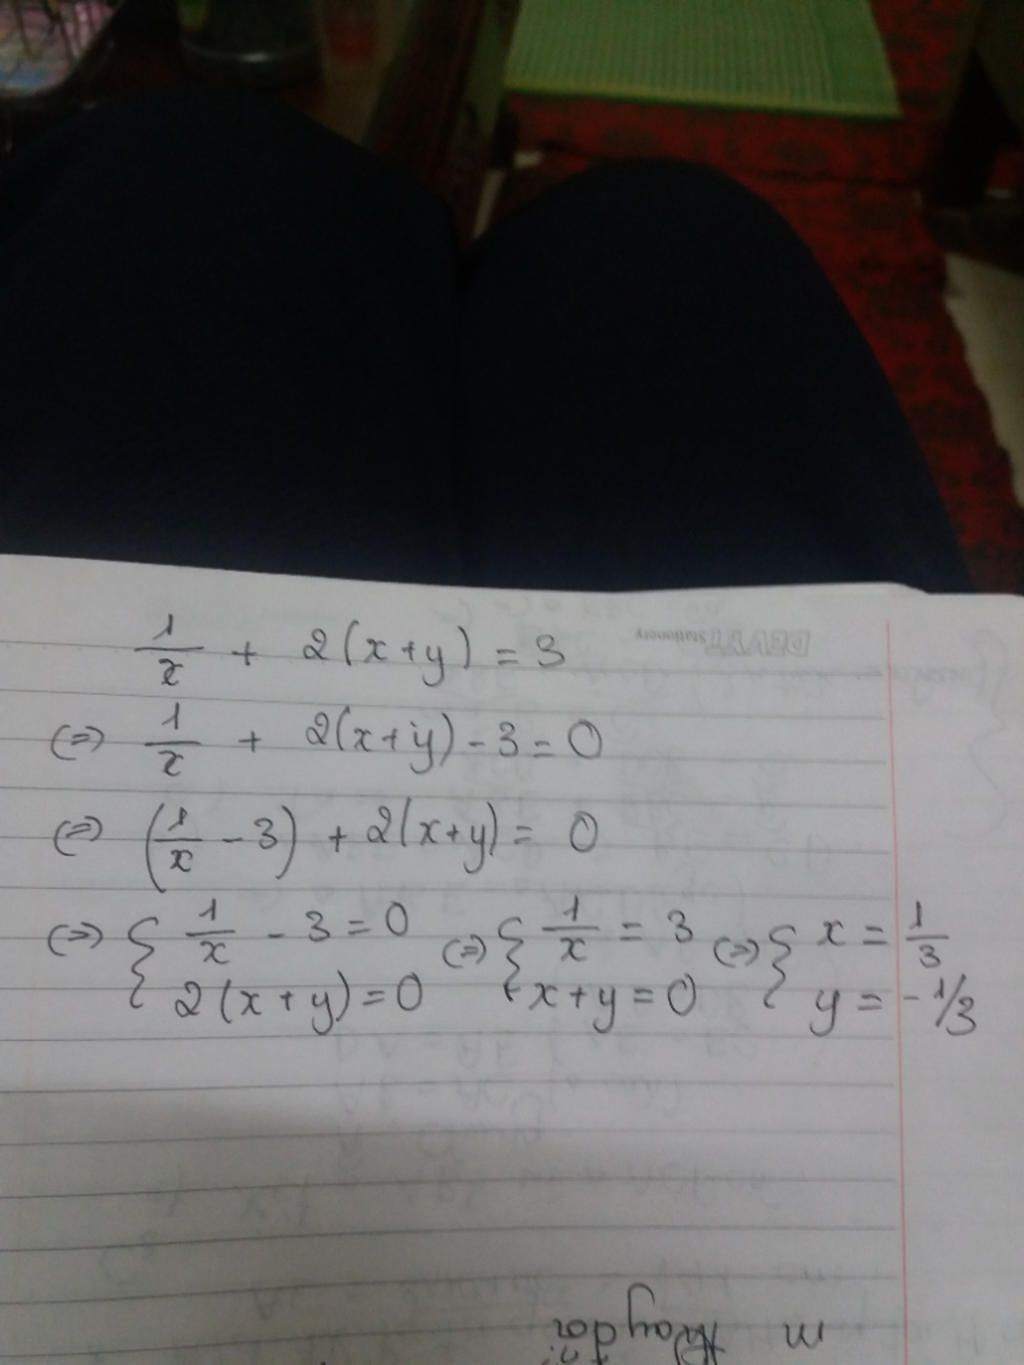 1/x + 2(x+y) = 3
(=>) 1/x + 2(x+y) - 3 = 0
(=>) (1/x - 3) + 2(x+y) = 0
(=>) { 1/x - 3 = 0 (=>) { 1/x = 3 (=>) { x = 1/3
2(x+y) = 0 x+y = 0 y = -1/3
DEVYT Stationery
m